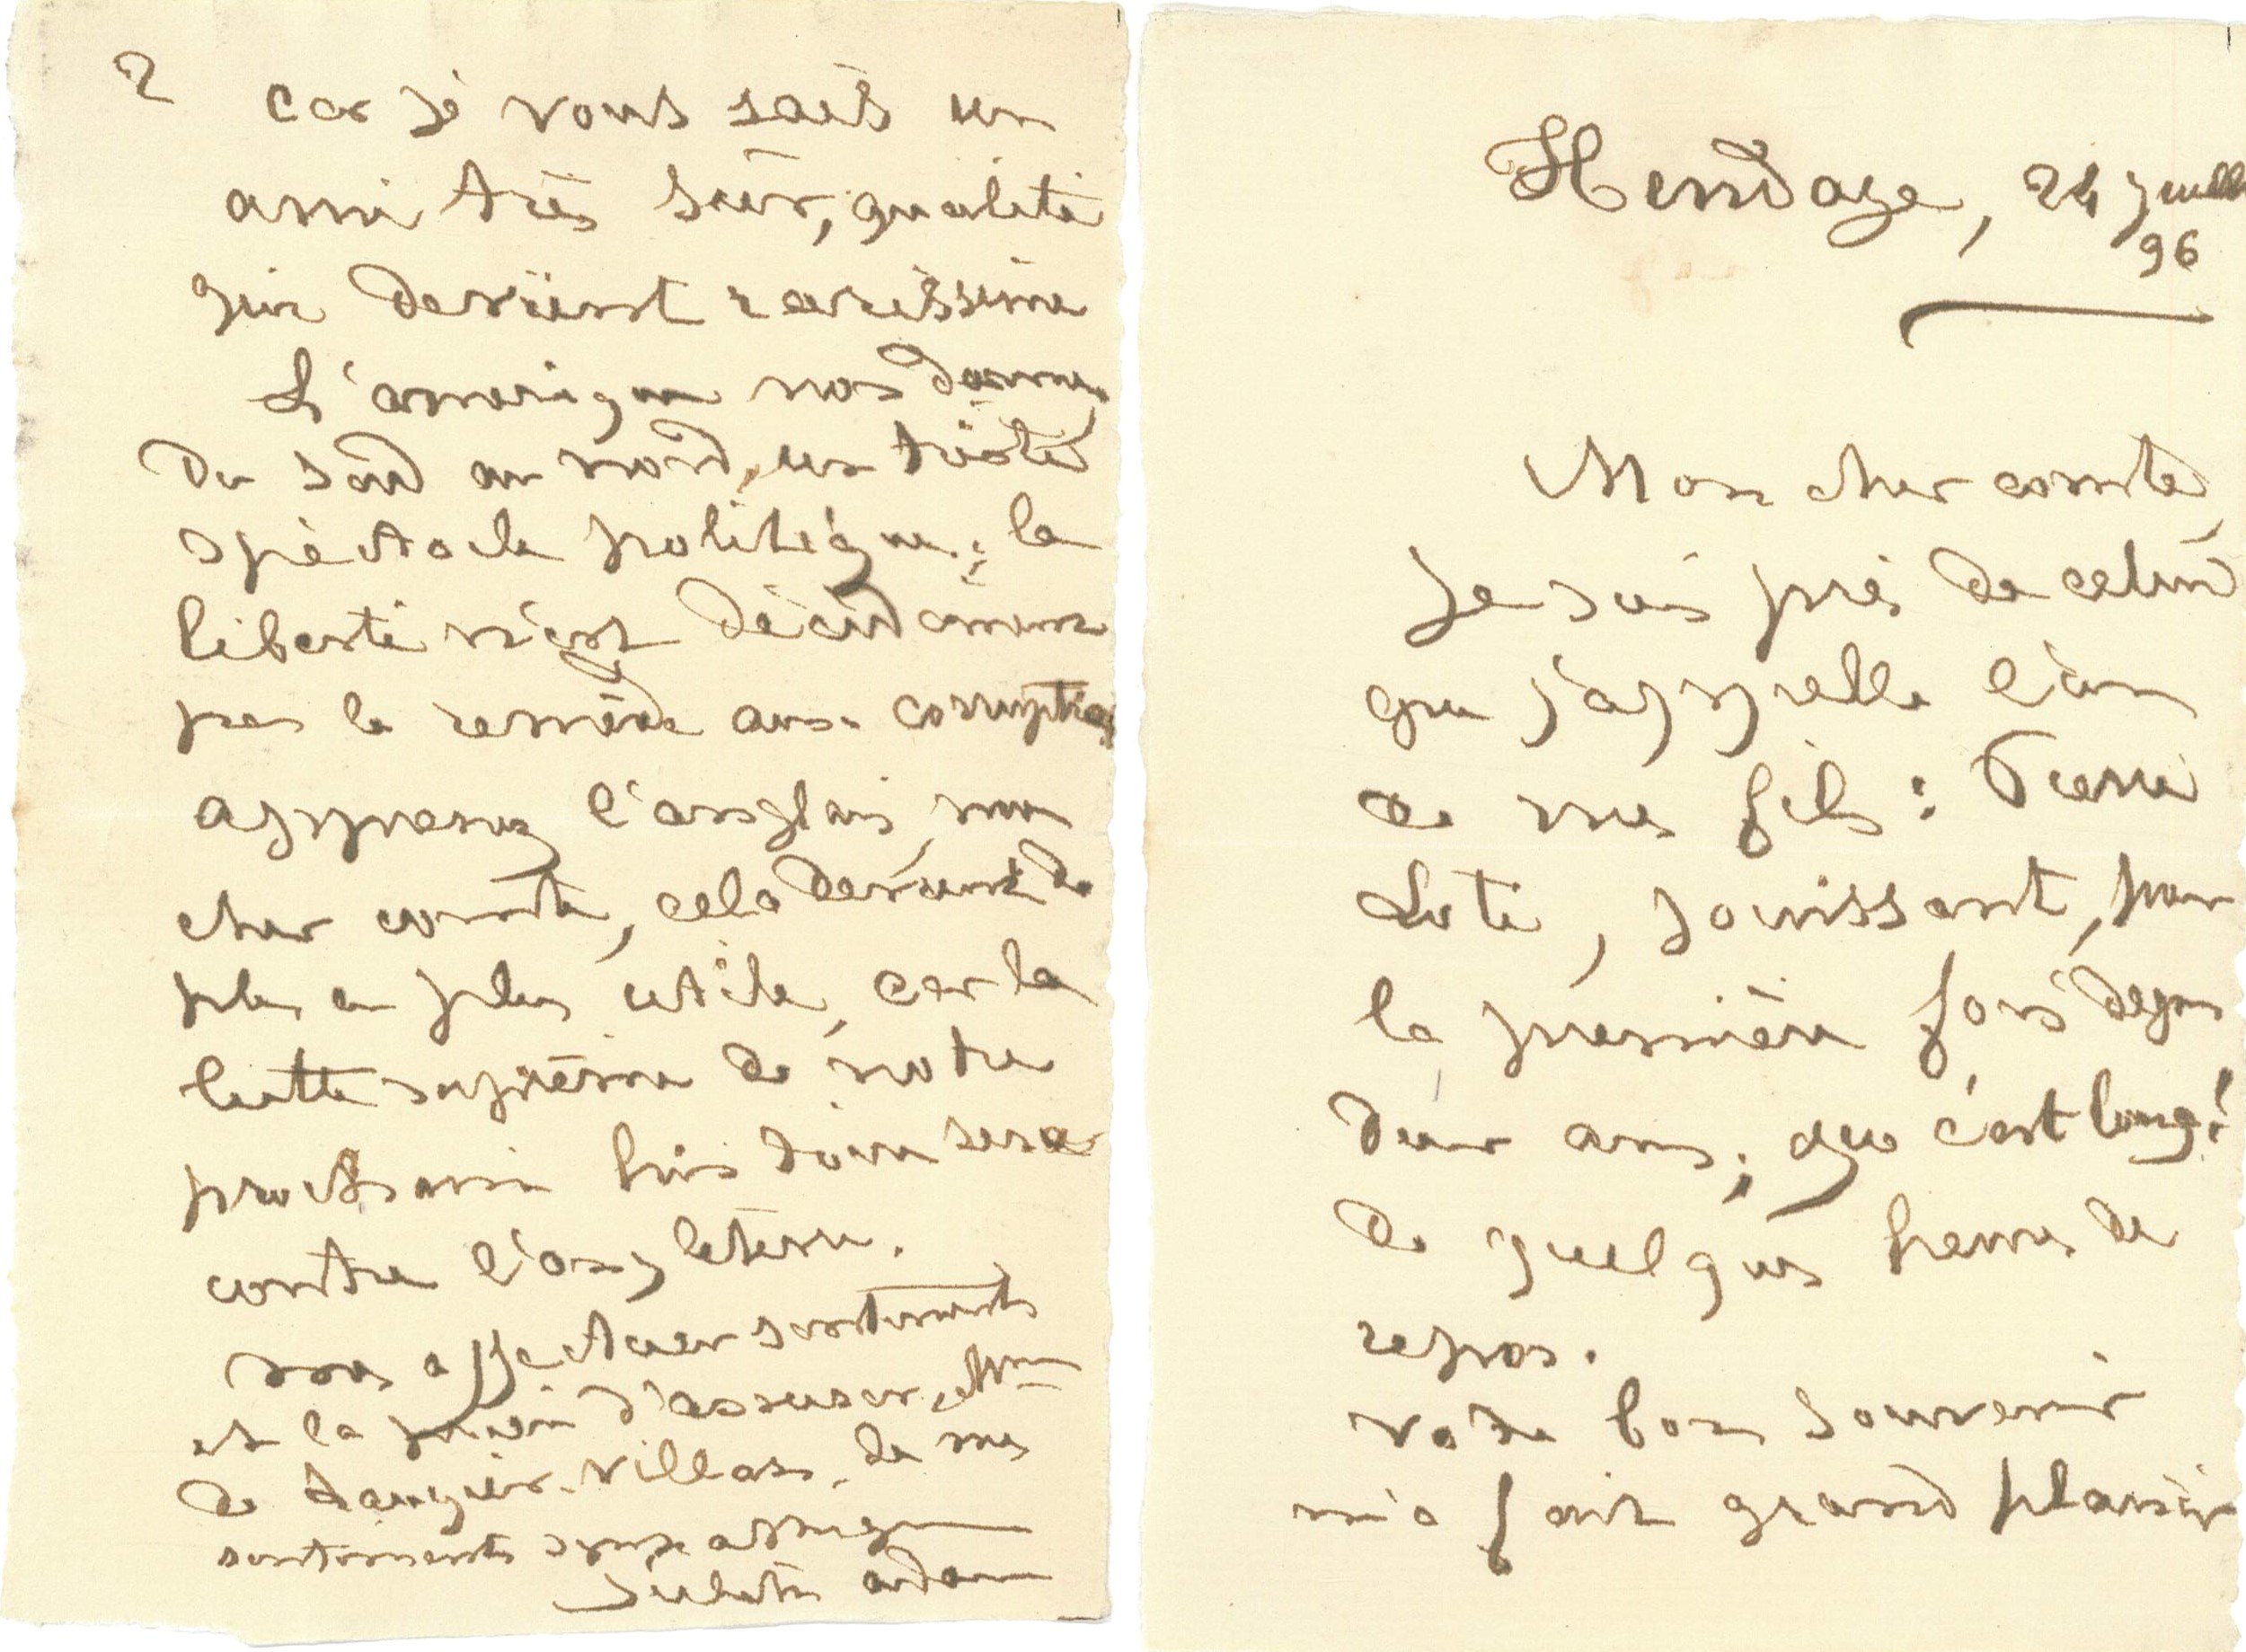 Hendaye, 24 juill
96
Mon cher comte,
Je suis près de celui
que j'appelle l'un
de mes fils : Pierre
Loti, jouissant, pour
la première fois depuis
deux ans ; que c'est long !
de quelques heures de
repos.
Votre bon souvenir
m'a fait grand plaisir
2
car je vous sais un
ami très sûr, qualité
qui devient rarissime
L'amérique nos donne,
du sud au nord, un triste
spectacle politique ; la
liberté n'est décidément
pas le remède aux corruptions
apprenez l'anglais, mon
cher comte, cela devient de
plus en plus utile, car la
lutte suprême de notre
prochaine histoire sera
contre l'angleterre.
mes affectueux sentiments
et la prière d'assurer Mme
de villars, de mes
sentiments sympathiques
Juliette adam